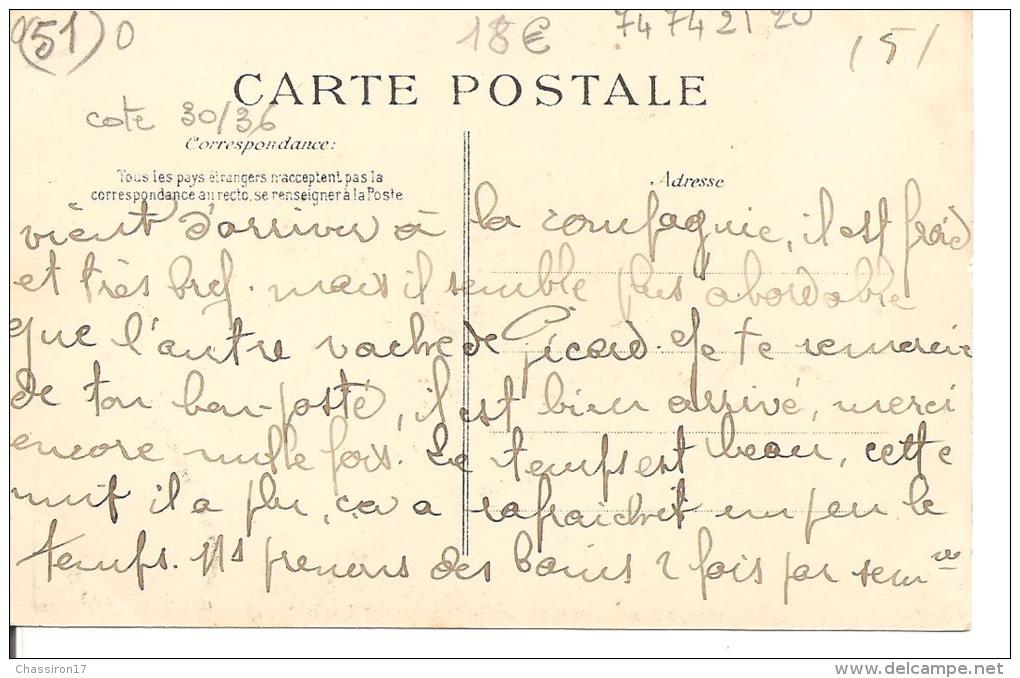 (51) 0
18€
74 74 21 20
(51
CARTE POSTALE
cote 30/36
Correspondance:
Tous les pays étrangers n'acceptent pas la
correspondance au recto, se renseigner à la Poste
Adresse
vient d'arriver à la compagnie, il est froid
et très bref. mais il semble plus abordable
que l'autre vache de Picard. Je te remercie
de ton bon-poste, il est bien arrivé, merci
encore mille fois. Le temps est beau, cette
nuit il a plu, ça a rafraichit un peu le
temps. Ns prenons des bains 2 fois par semne
Chassiron17
www.delcampe.net